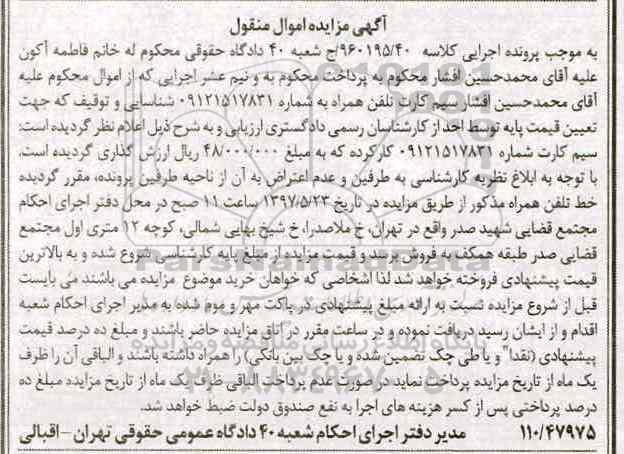 آگهی مزایده اموال منقول
به موجب پرونده اجرایی کلاسه ۹۶۰۱۹۵/۴۰/ج شعبه ۴۰ دادگاه حقوقی محکوم له خانم فاطمه آکون
علیه آقای محمدحسین افشار محکوم به پرداخت محکوم به و نیم عشر اجرایی که از اموال محکوم علیه
آقای محمدحسین افشار سیم کارت تلفن همراه به شماره ۰۹۱۲۱۵۱۷۸۳۱ شناسایی و توقیف که جهت
تعیین قیمت پایه توسط احد از کارشناسان رسمی دادگستری ارزیابی و به شرح ذیل اعلام نظر گردیده است:
سیم کارت شماره ۰۹۱۲۱۵۱۷۸۳۱ کارکرده که به مبلغ ۴۸/۰۰۰/۰۰۰ ریال ارزش گذاری گردیده است،
با توجه به ابلاغ نظریه کارشناسی به طرفین و عدم اعتراض به آن از ناحیه طرفین پرونده، مقرر گردیده
خط تلفن همراه مذکور از طریق مزایده در تاریخ ۱۳۹۷/۵/۲۳ ساعت ۱۱ صبح در محل دفتر اجرای احکام
مجتمع قضایی شهید صدر واقع در تهران، خ ملاصدرا، خ شیخ بهایی شمالی، کوچه ۱۲ متری اول مجتمع
قضایی صدر طبقه همکف به فروش برسد و قیمت مزایده از مبلغ پایه کارشناسی شروع شده و به بالاترین
قیمت پیشنهادی فروخته خواهد شد لذا اشخاصی که خواهان خرید موضوع مزایده می باشند می بایست
قبل از شروع مزایده نسبت به ارائه مبلغ پیشنهادی در پاکت مهر و موم شده به مدیر اجرای احکام شعبه
اقدام و از ایشان رسید دریافت نموده و در ساعت مقرر در اتاق مزایده حاضر باشند و مبلغ ده درصد قیمت
پیشنهادی (نقدا" و یا طی چک تضمین شده و یا چک بین بانکی) را همراه داشته باشند و الباقی آن را ظرف
یک ماه از تاریخ مزایده پرداخت نماید در صورت عدم پرداخت الباقی ظرف یک ماه از تاریخ مزایده مبلغ ده
درصد پرداختی پس از کسر هزینه های اجرا به نفع صندوق دولت ضبط خواهد شد.
۱۱۰/۴۷۹۷۵ مدیر دفتر اجرای احکام شعبه ۴۰ دادگاه عمومی حقوقی تهران - اقبالی